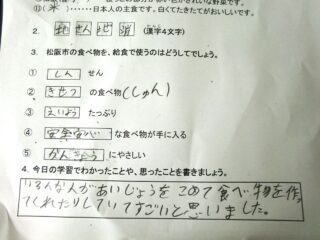 ⑪(米)……日本人の主食です。白くてたきたてがおいしいです。
2. 地せん地消 (漢字4文字)
3. 松阪市の食べ物を、給食で使うのはどうしてでしょう。
① しん せん
② きせつ の食べ物(しゅん)
③ えいよう たっぷり
④ 安全安心 な食べ物が手に入る
⑤ かんきょう にやさしい
4. 今日の学習でわかったことや、思ったことを書きましょう。
いろんな人があいじょうをこめて食べ物を作っ
てくれたりしていてすごいと思いました。